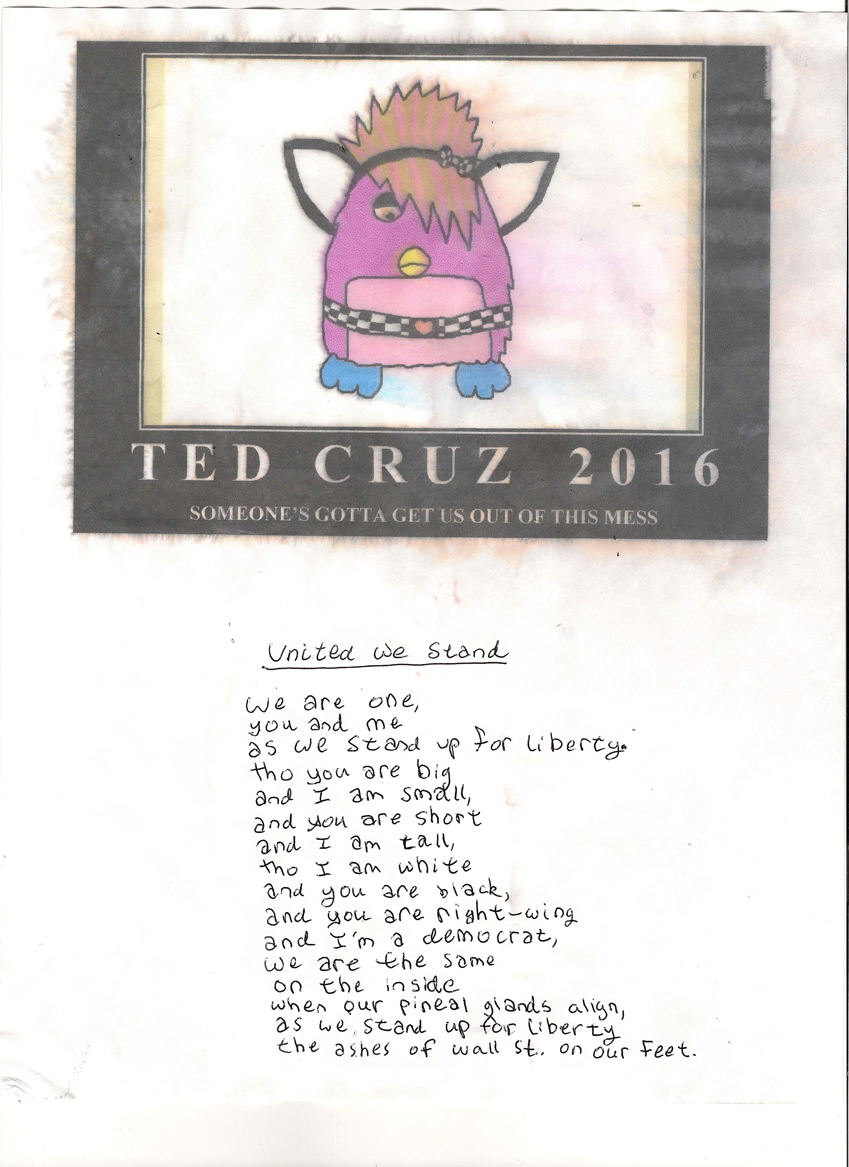 TED CRUZ 2016
SOMEONE'S GOTTA GET US OUT OF THIS MESS
United we stand
we are one,
you and me
as we stand up for liberty.
tho you are big
and I am small,
and you are short
and I am tall,
tho I am white
and you are black,
and you are right-wing
and I'm a democrat,
we are the same
on the inside
when our pineal glands align,
as we stand up for liberty
the ashes of wall st. on our feet.